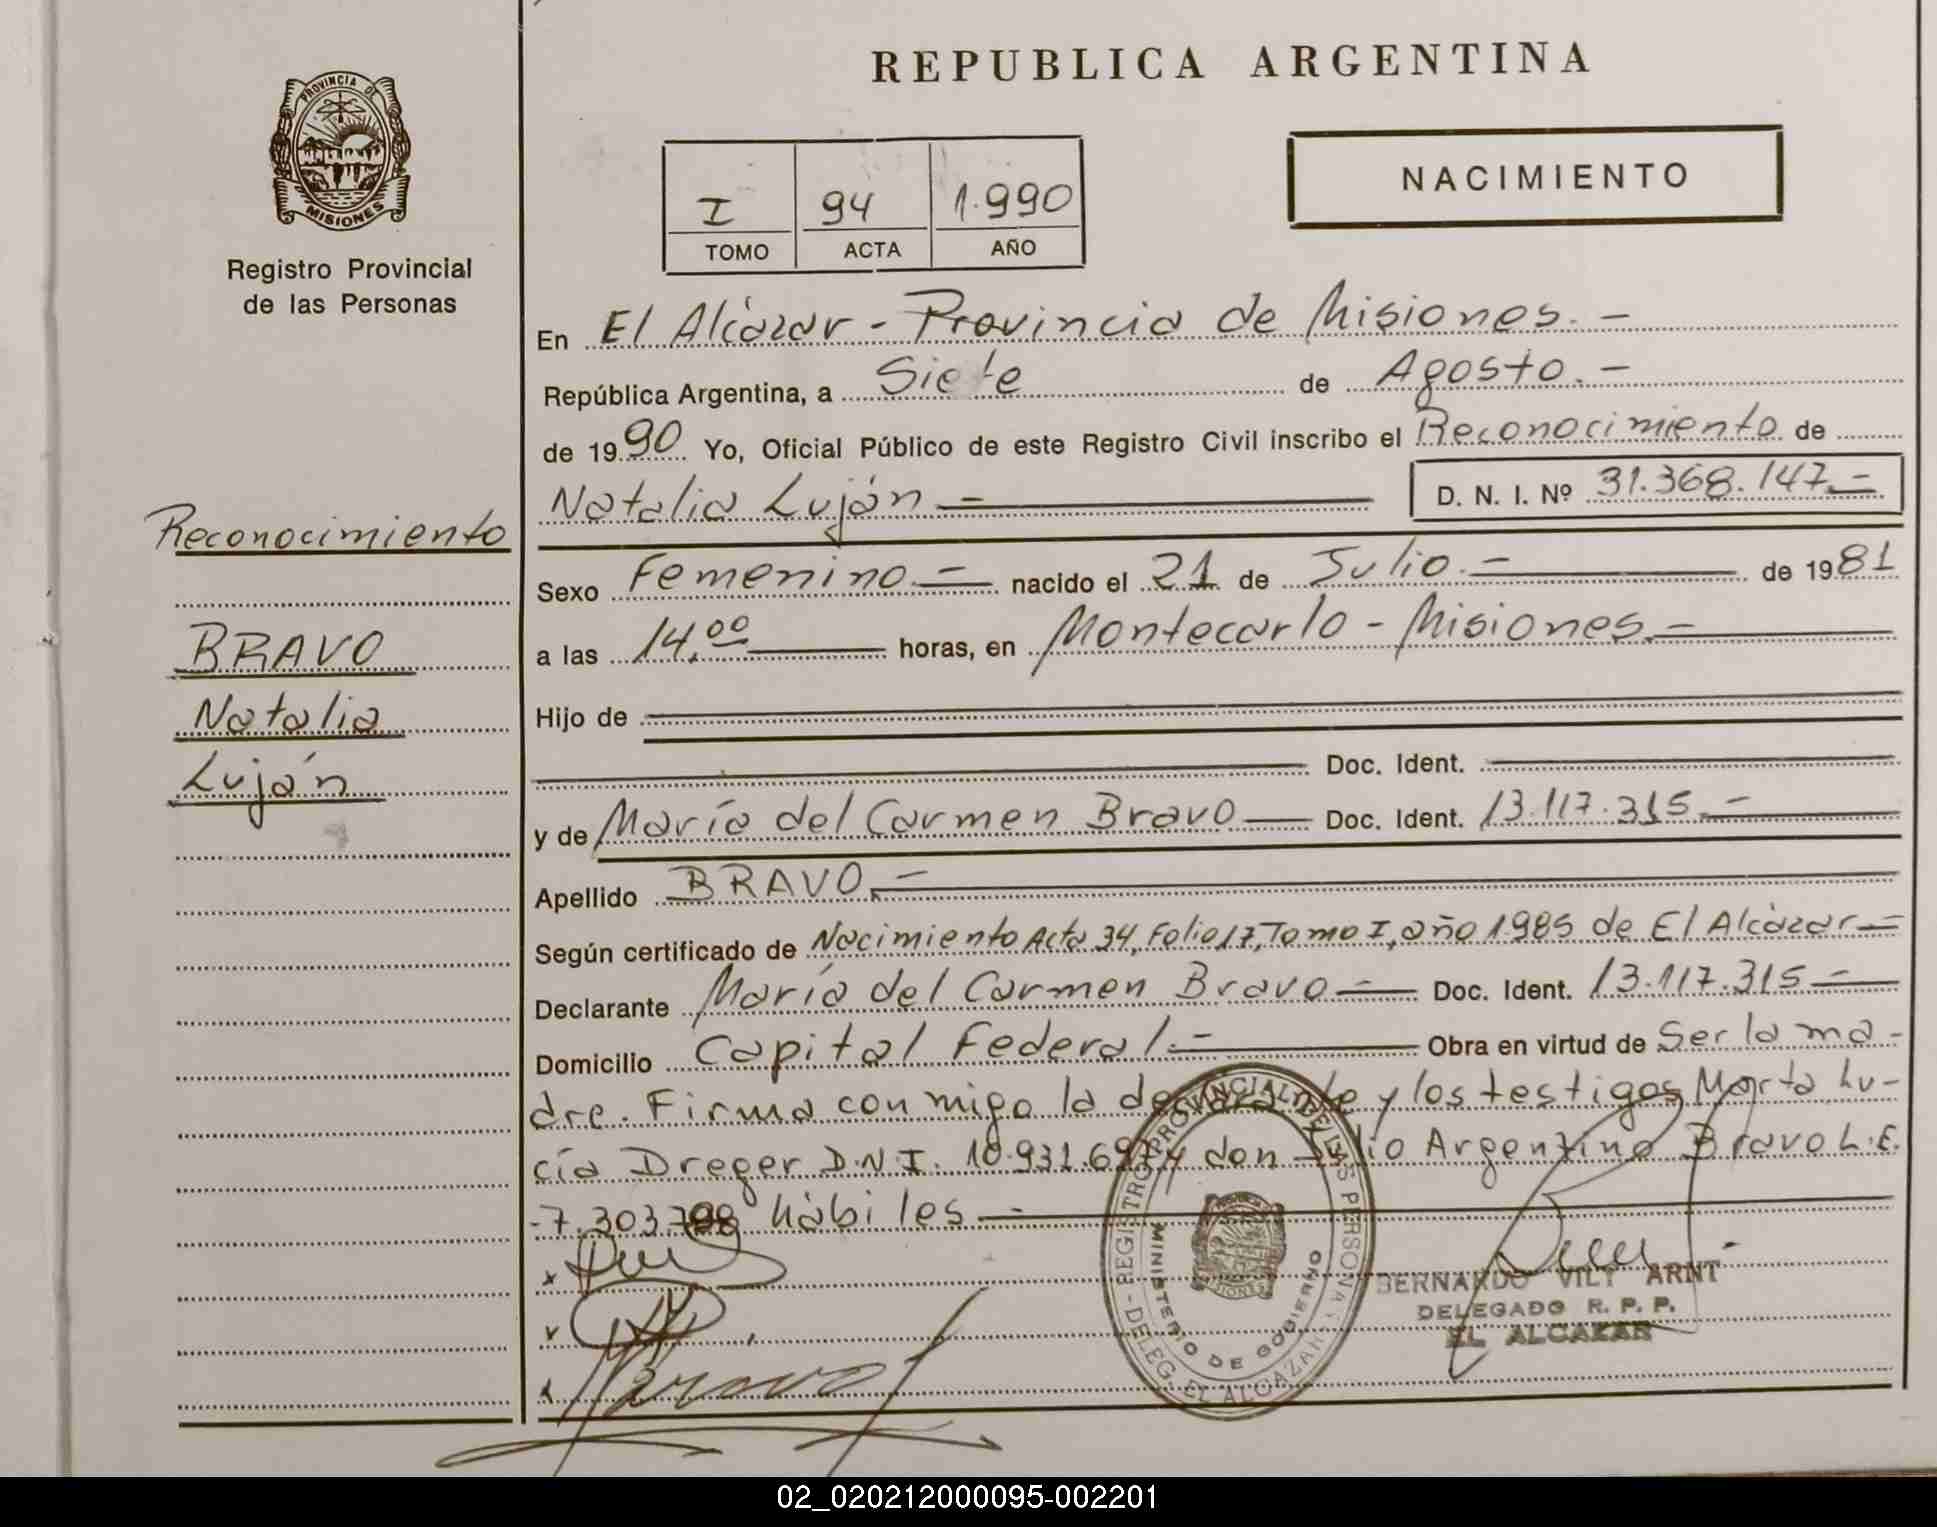 REPUBLICA ARGENTINA
PROVINCIA DE
MISIONES
Registro Provincial
de las Personas
I 94 1.990
TOMO ACTA AÑO
NACIMIENTO
En El Alcázar - Provincia de Misiones. -
República Argentina, a Siete de Agosto. -
de 1990 Yo, Oficial Público de este Registro Civil inscribo el Reconocimiento de
Natalia Luján - D. N. I. Nº 31.368.147. -
Reconocimiento
BRAVO
Natalia
Luján
Sexo Femenino. - nacido el 21 de Julio. - de 1981
a las 14,00 horas, en Montecarlo - Misiones. -
Hijo de
Doc. Ident.
y de María del Carmen Bravo Doc. Ident. 13.117.315. -
Apellido BRAVO. -
Según certificado de Nacimiento Acta 34, Folio 17, Tomo I, año 1985 de El Alcázar -
Declarante María del Carmen Bravo - Doc. Ident. 13.117.315 -
Domicilio Capital Federal. - Obra en virtud de Ser la ma-
dre. Firma con migo la declarante y los testigos Marta Lu-
cía Dreger D.N.I. 10.931.697 y don Julio Argentino Bravo L.E.
-7.303.798 hábiles -
REGISTRO PROVINCIAL DE LAS PERSONAS - DELEG. EL ALCAZAR
MINISTERIO DE GOBIERNO
BERNARDO VILY ARNT
DELEGADO R. P. P.
EL ALCAZAR
Bravo
02_020212000095-002201